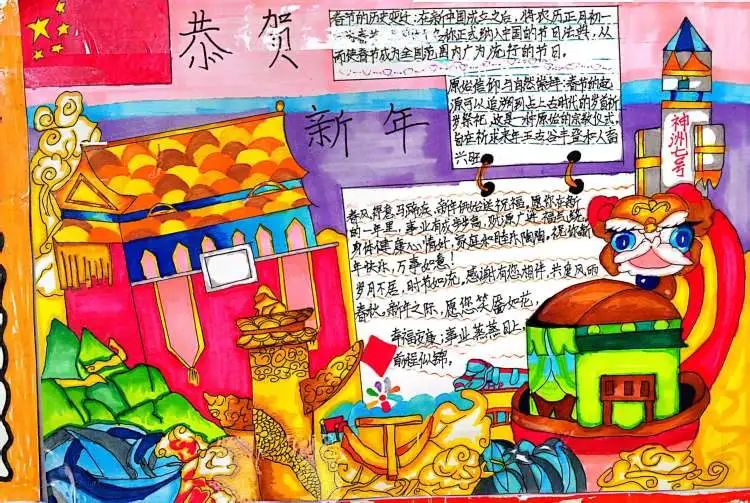 恭贺
新年
春节的历史变迁:在新中国成立之后,将农历正月初一
正式纳入中国的节日法典,从
而使春节成为全国范围内广为流行的节日。
原始信仰与自然崇拜:春节的起
源可以追溯到上古时代的岁首祈
岁祭祀,这是一种原始的宗教仪式,
旨在祈求来年五谷丰登和人畜
兴旺
神洲七号
新年伊始送祝福,愿你在新
的一年里,事业有成步步高,财源广进福气绕,
身体健康心情好,家庭和睦乐陶陶。祝你新
年快乐,万事如意!
岁月不居,时节如流。感谢有您相伴,共度风雨
春秋。新年之际,愿您笑靥如花,
幸福安康;事业蒸蒸日上,
前程似锦。